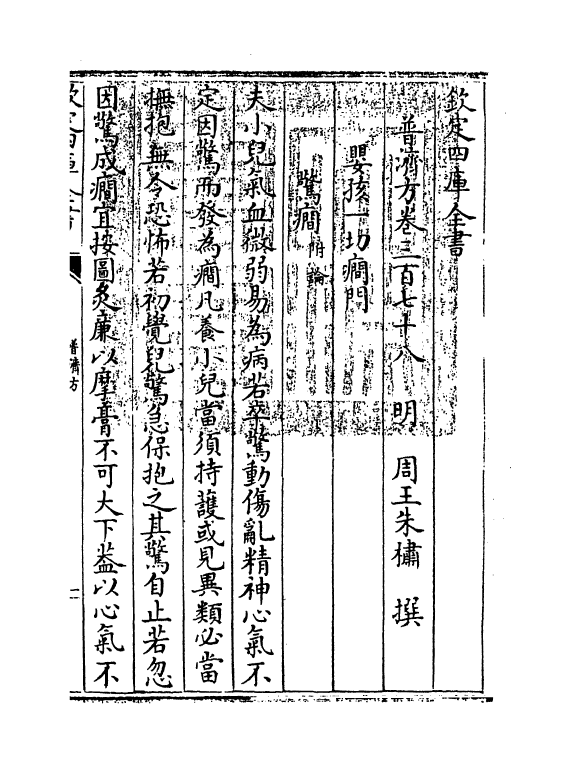 欽定四庫全書
普濟方卷三百七十八 明 周王朱橚 撰
嬰孩一切癎門
驚癎附論
夫小兒氣血微弱易為病若卒驚動傷亂精神心氣不
定因驚而發為癎凡養小兒當須持護或見異類必當
撫抱無令恐怖若初覺兒驚急保抱之其驚自止若忽
因驚成癎宜按圖灸廉以摩膏不可大下葢以心氣不
欽定四庫全書
普濟方
一